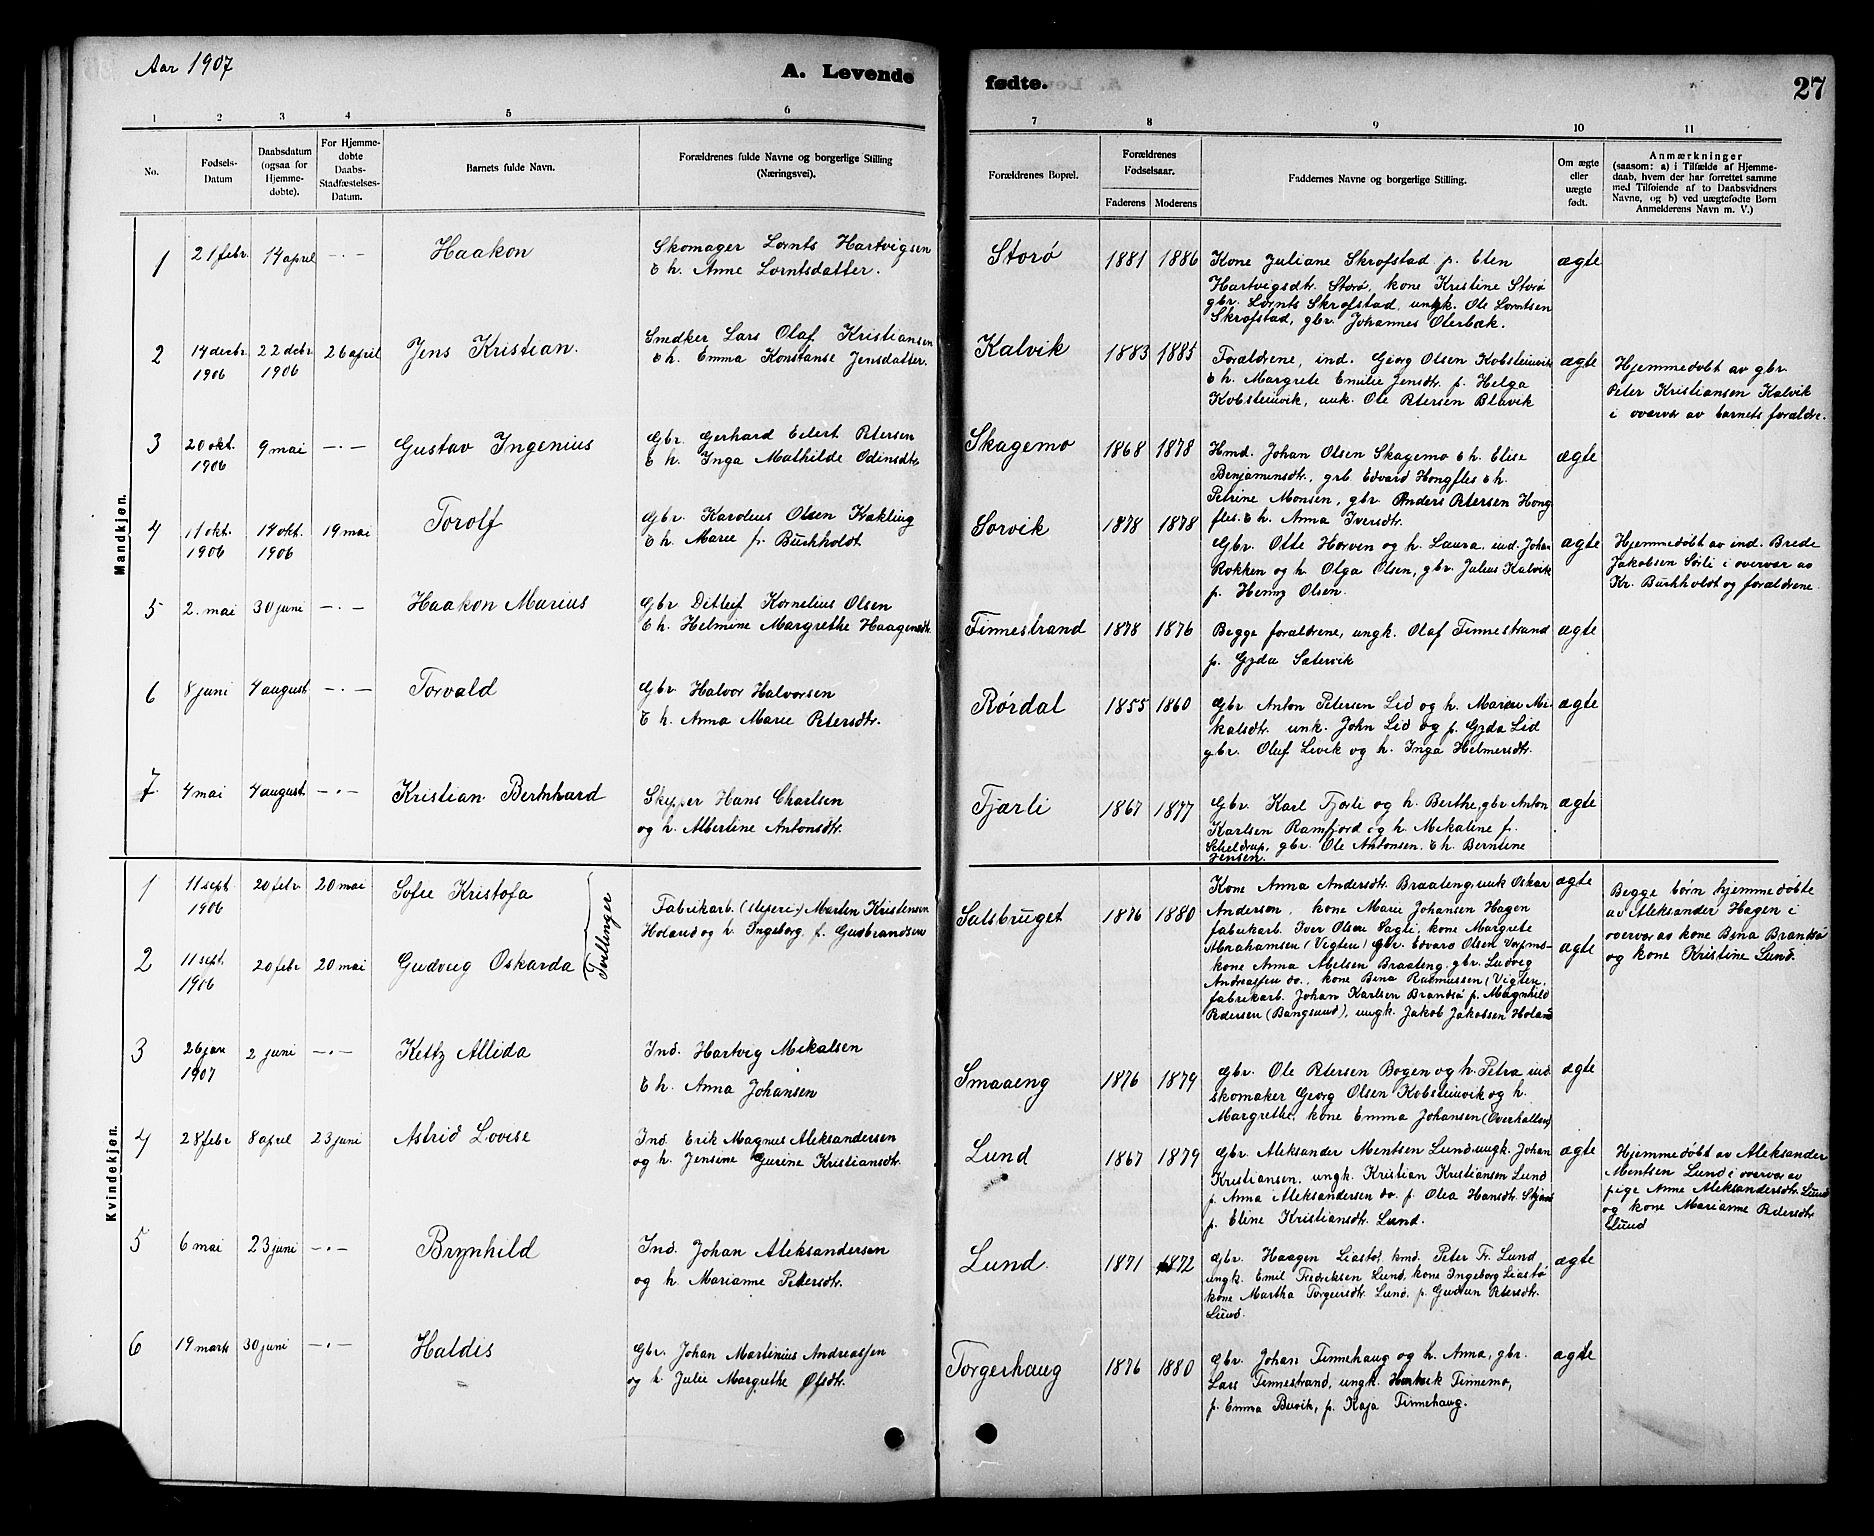 Aar 1907
A. Levende
fødte.
27
1 2 3 4 5 6 7 8 9 10 11
No.
Fødsels-
Datum
Daabsdatum
(ogsaa for
Hjemme-
døbte).
For Hjemme-
døbte
Daabs-
Stadfæstelses-
Datum.
Barnets fulde Navn.
Forældrenes fulde Navne og borgerlige Stilling
(Næringsvei).
Forældrenes Bopæl.
Forældrenes
Fødselsaar.
Faderens Moderens
Faddernes Navne og borgerlige Stilling.
Om ægte
eller
uægte
født.
Anmærkninger
(saasom: a) i Tilfælde af Hjemme-
daab, hvem der har forrettet samme
med Tilføiende af to Daabsvidners
Navne, og b) ved uægtefødte Børn
Anmelderens Navn m. V.)
Mandkjøn.
1 21 febr. 14 april -·- Haakon
Skomager Lornts Hartvigsen
& h. Anne Lorntsdatter.
Storø 1881 1886
Kone Juliane Skrofstad p. Elen
Hartvigsdtr. Storø, kone Kristine Storø
gbr. Lornts Skrofstad, ungk. Ole Lorntsen
Skrofstad, gbr. Johannes Oterbæk.
ægte
2 14 decbr. 1906 22 dcbr. 1906 26 april Jens Kristian.
Smedker Lars Olaf Kristiansen
& h. Emma Konstanse Jensdatter.
Kalvik 1883 1885
Forældrene, ind. Georg Olsen Kobsteinvik
& h. Margrete Emilie Jensdtr. p. Helga
Kobsteinvik, unk. Ole Petersen Blavik
ægte
Hjemmedøbt av gbr.
Peter Kristiansen Kalvik
i overvær av barnets forældre.
3 20 okt. 1906 9 mai -·- Gustav Ingenius
Gbr. Gerhard Eilert Petersen
& h. Inga Mathilde Odinsdtr
Skagemo 1868 1878
Hmd. Johan Olsen Skagemo & h. Elise
Benjaminsdtr., grb. Edvard Hongfles & h.
Petrine Monsen, gbr. Anders Petersen Hong
fles. & h. Anna Iversdtr.
ægte
4 11 okt. 1906 14 okt. 1906 19 mai Torolf
Gbr. Karolius Olsen Kækling
& h. Marie f. Buchholdt
Sørvik 1878 1878
Gbr. Otte Horven og h. Laura, ind. Johan
Rokken og h. Olga Olsen, gbr. Julius Kalvik
p. Henny Olsen.
ægte
Hjemmedøbt av ind. Brede
Jakobsen Sørli i overvær av
Kr. Buchholdt og forældrene.
5 2. mai 30 juni -·- Haakon Marius
Gbr Ditleif Kornelius Olsen
& h. Helmine Margrethe Haagensdtr.
Finnestrand 1878 1876
Begge forældrene, ungk. Olaf Finnestrand
p. Gyda Sætervik
ægte
6 8 juni 4 august -·- Torvald
Gbr Halvor Halvorsen
& h. Anna Marie Petersdtr.
Rørdal 1855 1860
Gbr Anton Petersen Lid og h. Marie Mi-
kalsdtr. unk. John Lid og p. Gyda Lid
gbr. Oluf Levik og h. Inga Helmersdtr.
ægte
7 4 mai 4 august -·- Kristian Bernhard
Skipper Hans Charlsen
og h. Albertine Antonsdtr.
Fjærli 1867 1877
Gbr. Karl Fjærli og h. Berthe, gbr Anton
Karlsen Ramfjord og h. Mikaline f.
Scheldrup, gbr. Ole Antonsen. & h. Berntine
Jensen.
ægte
Kvindekjøn.
1 11 sept 1906 20 febr. 20 mai Sofie Kristofa
2 11 sept. 1906 20 febr 20 mai Gudvug Oskarda
Tvillinger
Fabrikarb. (sliperi) Martin Kristensen
Holand og h. Ingeborg f. Gudbrandsen
Salsbruget 1876 1880
Kone Anna Andersdtr. Braateng, unk Oskar
Anderson, kone Marie Johansen Hagen
fabrikarb. Iver Olsen Sagli, kone Margrete
Abrahamsen (Vigten) gbr. Edvard Olsen
kone Anna Abelsen Braateng, gbr. Ludvig
Andreassen do., kone Bena Rasmussen (Vigten,
fabrikarb. Johan Karlsen Brandsø p. Magnhild
Pedersen (Bangsund), ungk. Jakob Jakobsen Holand
ægte
ægte
Begge børn hjemmedøbte
av Aleksander Hagen i
overvær av kone Bena Brandsø
og kone Kristine Lund.
3 26 jan 1907 2 juni -·- Ketty Allida
Ind. Hartvig Mikalsen
& h. Anna Johansen
Smaaeng 1876 1879
Gbr. Ole Petersen Bogen og h. Petra ind
skomaker Georg Olsen Kobsteinvik og h.
Margrethe, kone Emma Johansen (Overhallen)
ægte
4 28 febr 8 april 23 juni Astrid Lovise
Ind. Erik Magnus Aleksandersen
og h. Jensine Gurine Kristiansdtr.
Lund 1867 1879
Gbr. Aleksander Mentsen Lund, ungk. Johan
Kristiansen, ungk. Kristian Kristiansen Lund
p. Anna Aleksandersen do. p. Olea Hansdtr.
p. Eline Kristiansdtr. Lund.
ægte
Hjemmedøbt av Aleksander
Mentsen Lund i overvær av
pige Anne Aleksandersdtr. Lund
og kone Marianne Petersdtr
Lund
5 6 mai 23 juni -·- Brynhild
Ind. Johan Aleksandersen
og h. Marianne Petersdtr.
Lund. 1871 1872
Gbr. Haagen Liastø, kmd. Peter Fr. Lund
ungk. Emil Fredriksen Lund, kone Ingeborg Liastø
kone Martha Torgersdtr. Lund. p. Gudrun Petersdtr.
Lund.
ægte
6 19 marts 30 juni -·- Haldis
Gbr. Johan Martinius Andreassen
og h Julie Margrethe Olsdtr.
Torgerhaug 1876 1880
Gbr. Johan Finnehaug og h. Anna, gbr.
Lars Finnestrand, ungk. Henrik Finnemo,
p. Emma Buvik, p. Kaja Finnehaug.
ægte